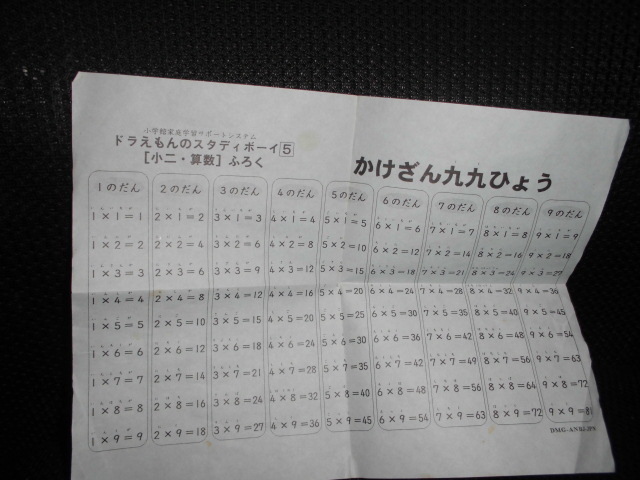 小学館家庭学習サポートシステム
ドラえもんのスタディボーイ5
[小二・算数]ふろく
かけざん九九ひょう
1のだん 2のだん 3のだん 4のだん 5のだん 6のだん 7のだん 8のだん 9のだん
1×1=1 2×1=2 3×1=3 4×1=4 5×1=5 6×1=6 7×1=7 8×1=8 9×1=9
1×2=2 2×2=4 3×2=6 4×2=8 5×2=10 6×2=12 7×2=14 8×2=16 9×2=18
1×3=3 2×3=6 3×3=9 4×3=12 5×3=15 6×3=18 7×3=21 8×3=24 9×3=27
1×4=4 2×4=8 3×4=12 4×4=16 5×4=20 6×4=24 7×4=28 8×4=32 9×4=36
1×5=5 2×5=10 3×5=15 4×5=20 5×5=25 6×5=30 7×5=35 8×5=40 9×5=45
1×6=6 2×6=12 3×6=18 4×6=24 5×6=30 6×6=36 7×6=42 8×6=48 9×6=54
1×7=7 2×7=14 3×7=21 4×7=28 5×7=35 6×7=42 7×7=49 8×7=56 9×7=63
1×8=8 2×8=16 3×8=24 4×8=32 5×8=40 6×8=48 7×8=56 8×8=64 9×8=72
1×9=9 2×9=18 3×9=27 4×9=36 5×9=45 6×9=54 7×9=63 8×9=72 9×9=81